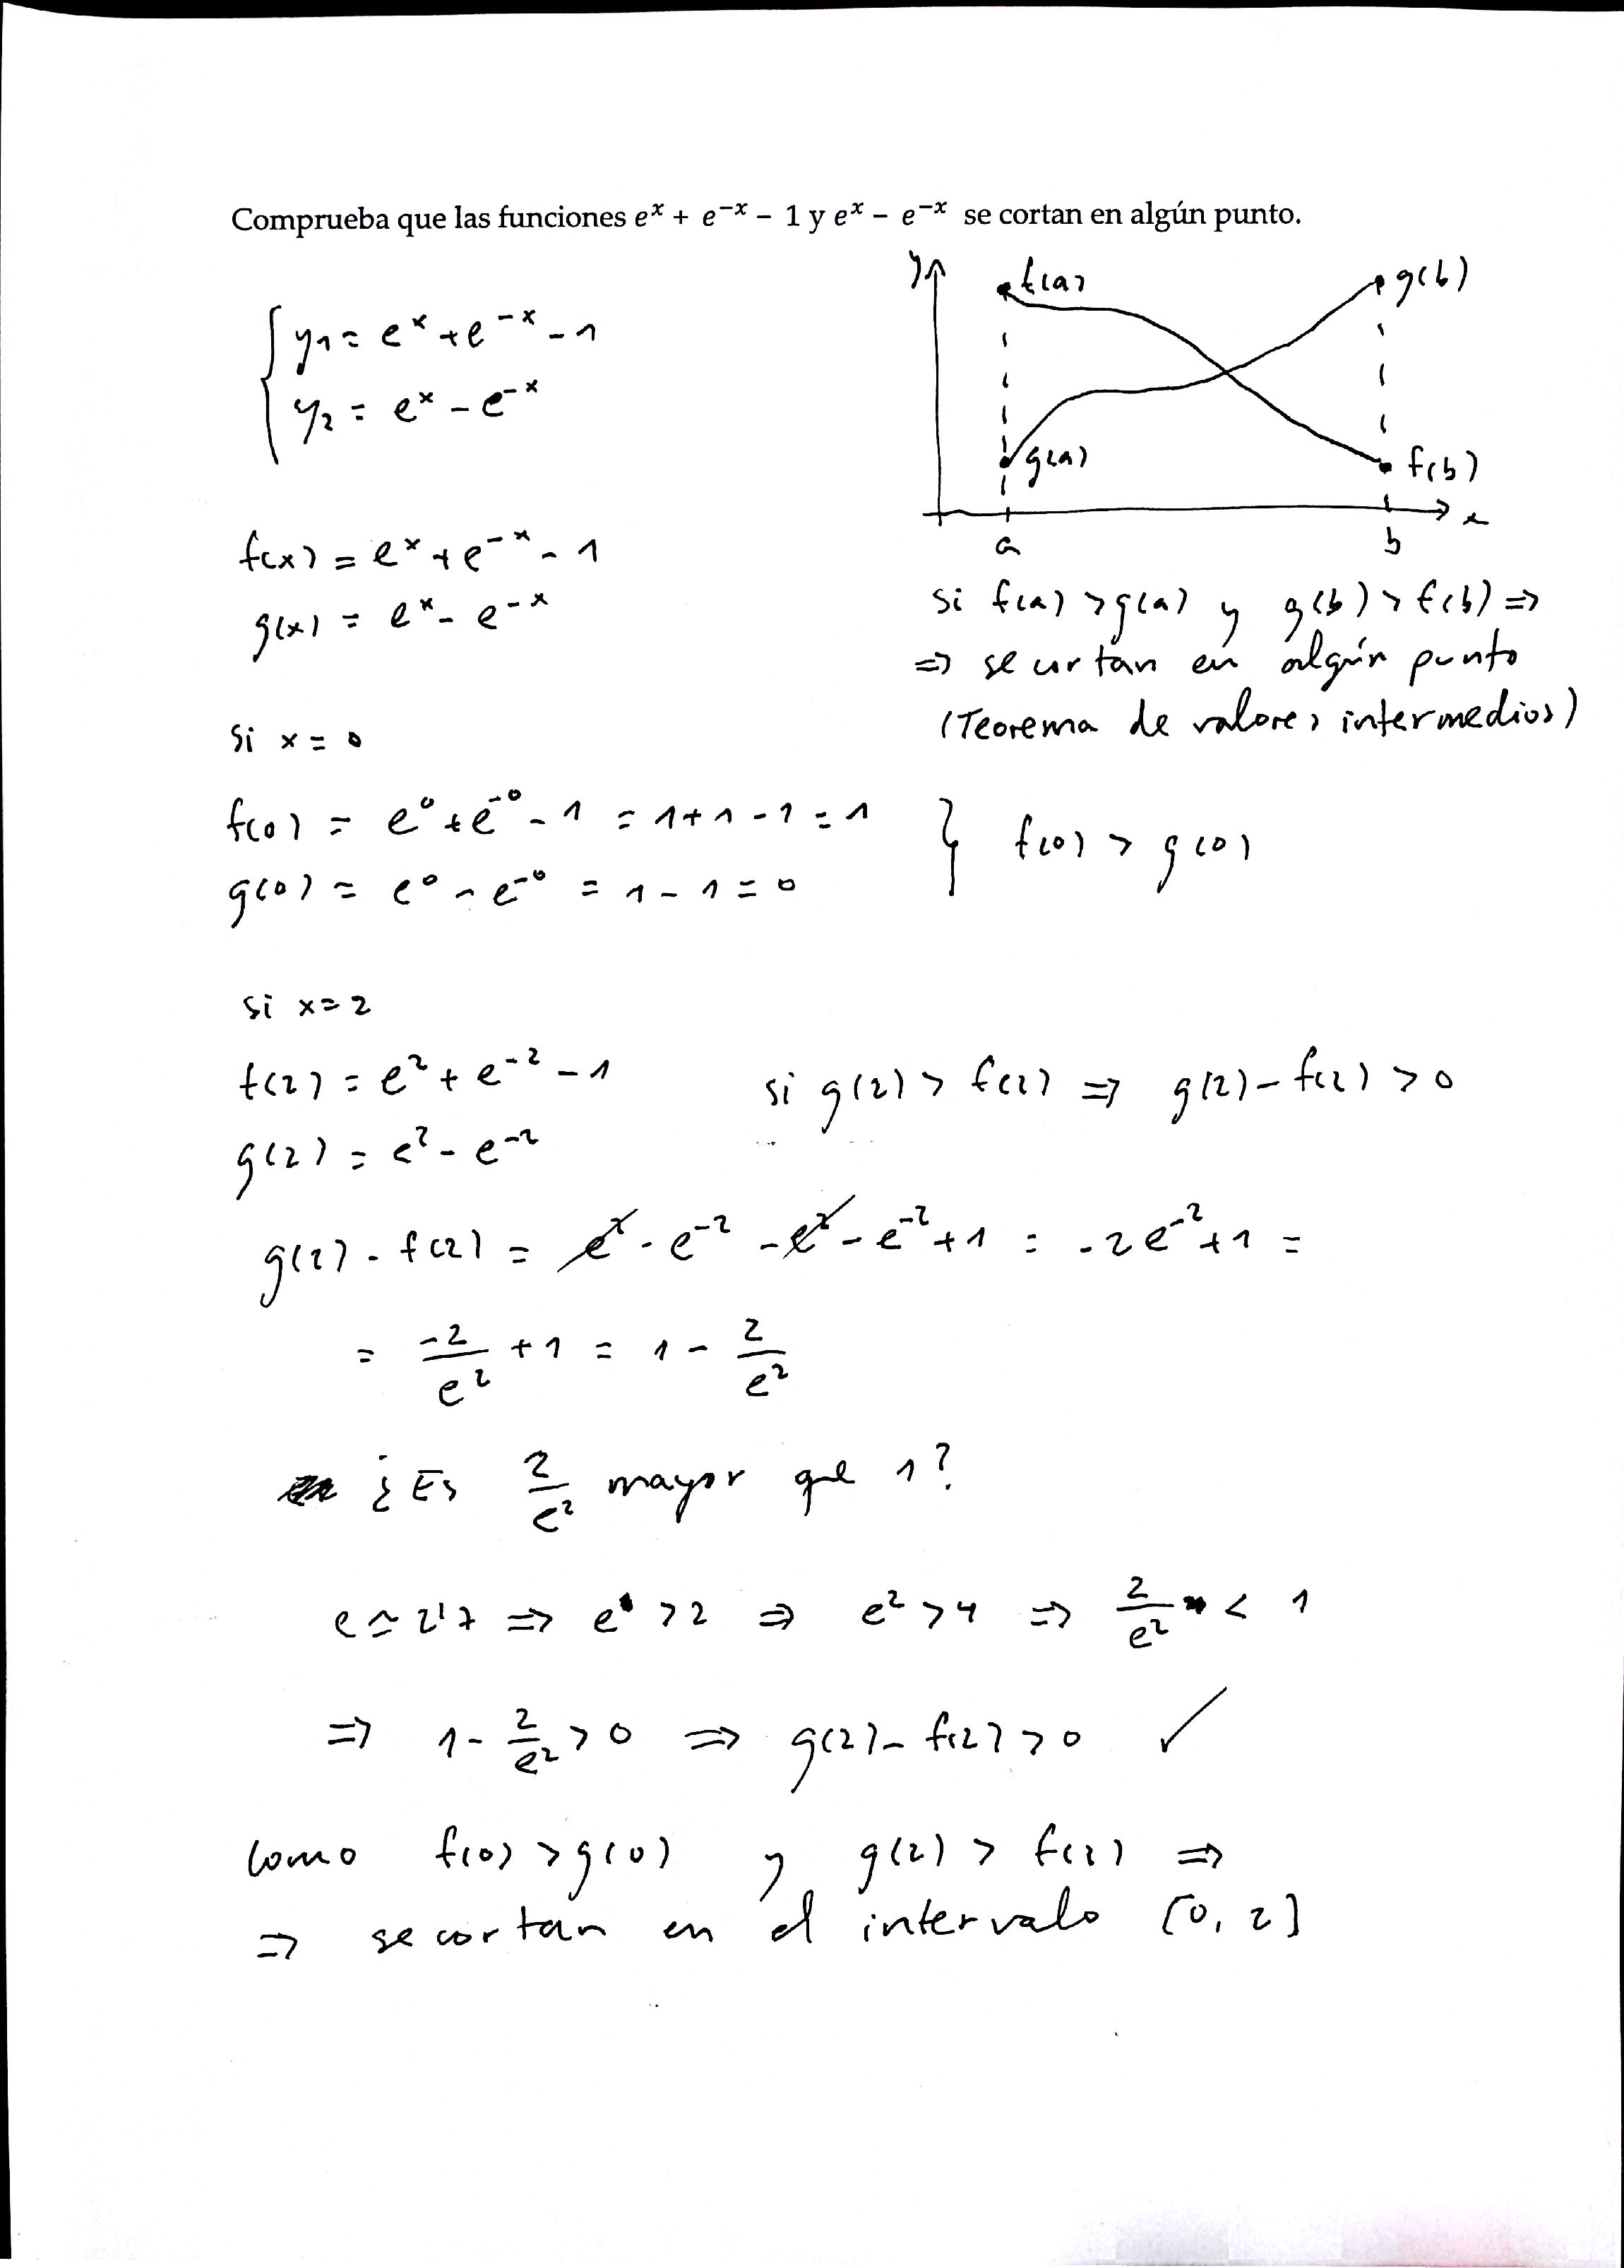 Comprueba que las funciones eˣ + e⁻ˣ − 1 y eˣ − e⁻ˣ se cortan en algún punto.
y₁ = eˣ + e⁻ˣ − 1
y₂ = eˣ − e⁻ˣ
y
f(a)
g(b)
g(a)
f(b)
a
b
x
si f(a) > g(a) y g(b) > f(b) ⇒
⇒ se cortan en algún punto
(Teorema de valores intermedios)
f(x) = eˣ + e⁻ˣ − 1
g(x) = eˣ − e⁻ˣ
Si x = 0
f(0) = e⁰ + e⁻⁰ − 1 = 1 + 1 − 1 = 1
g(0) = e⁰ − e⁻⁰ = 1 − 1 = 0
} f(0) > g(0)
Si x = 2
f(2) = e² + e⁻² − 1
g(2) = e² − e⁻²
si g(2) > f(2) ⇒ g(2) − f(2) > 0
g(2) − f(2) = e² − e⁻² − e² − e⁻² + 1 = −2e⁻² + 1 =
= −2/e² + 1 = 1 − 2/e²
¿Es 2/e² mayor que 1?
e ≃ 2'7 ⇒ e > 2 ⇒ e² > 4 ⇒ 2/e² < 1
⇒ 1 − 2/e² > 0 ⇒ g(2) − f(2) > 0 ✓
Como f(0) > g(0) y g(2) > f(2) ⇒
⇒ se cortan en el intervalo [0, 2]